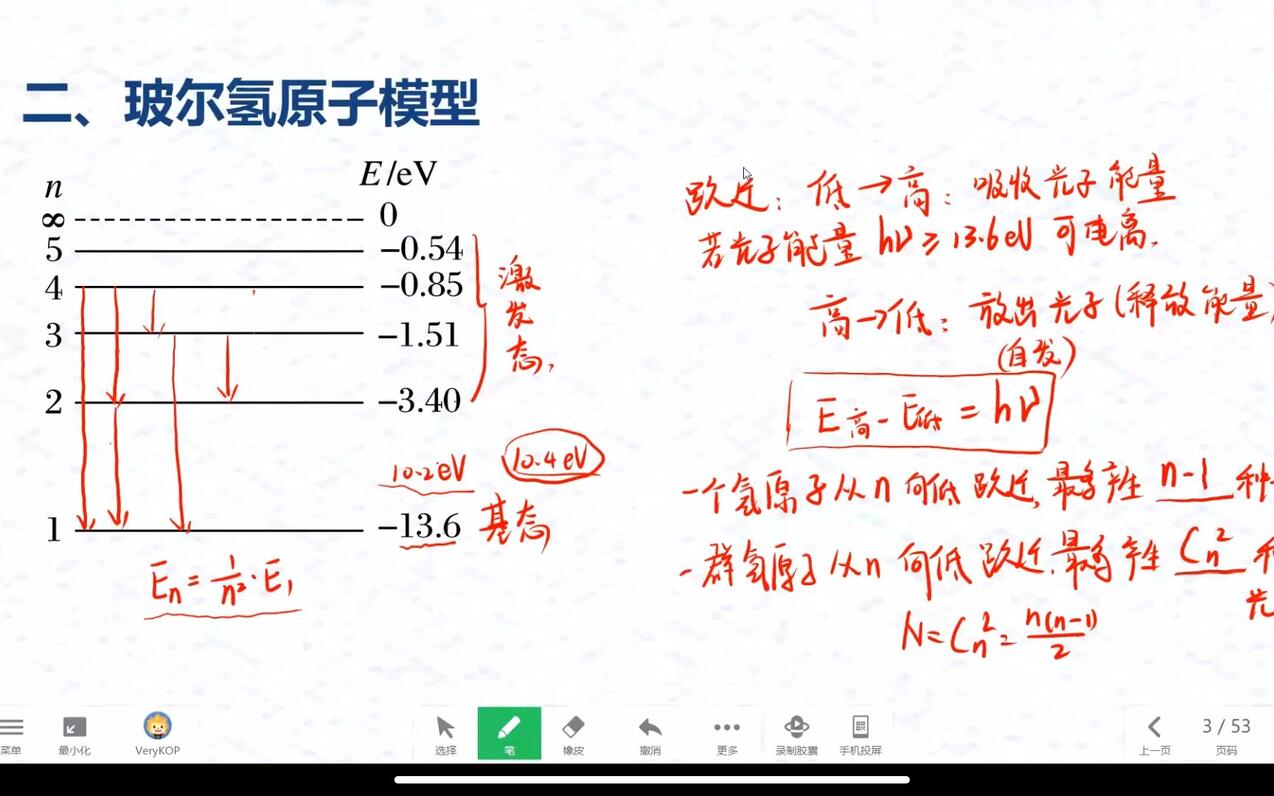 二、玻尔氢原子模型
n E/eV
∞ 0
5 -0.54
4 -0.85
3 -1.51
2 -3.40
1 -13.6
激发态,
10.2eV 10.4eV
基态
Eₙ=1/n²·E₁
跃迁:低→高:吸收光子能量
若光子能量 hν≥13.6eV 可电离.
高→低:放出光子(释放能量)
(自发)
E高-E低=hν
一个氢原子从n向低跃迁,最多产生 n-1 种
一群氢原子从n向低跃迁.最多产生 Cₙ²
光
N=Cₙ²=n(n-1)/2
菜单 最小化 VeryKOP 选择 笔 橡皮 撤消 更多 录制胶囊 手机投屏 上一页 3 / 53 页码